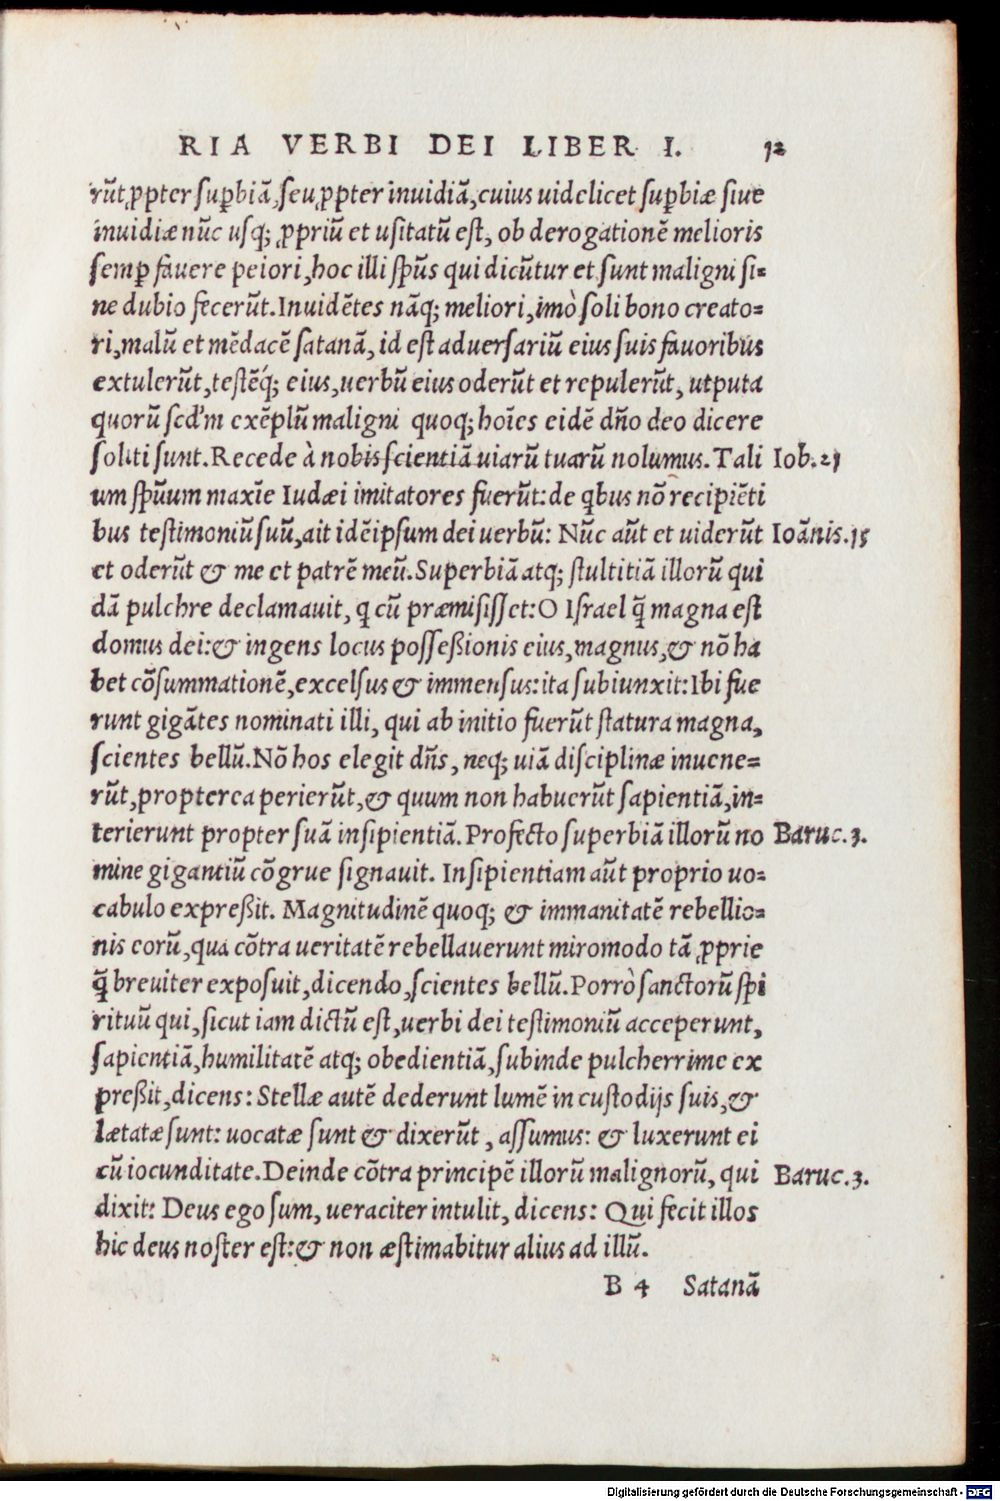 RIA VERBI DEI LIBER I. 12
rũt, ꝓpter suꝑbiã, seu ꝓpter inuidiã, cuius uidelicet suꝑbiæ siue
inuidiæ nũc usq; ꝓpriũ et usitatũ est, ob derogationẽ melioris
semꝑ fauere peiori, hoc illi sp̃us qui dicũtur et sunt maligni si=
ne dubio fecerũt. Inuidẽtes nãq; meliori, imò soli bono creato=
ri, malũ et mẽdacẽ satanã, id est aduersariũ eius suis fauoribus
extulerũt, testẽq́; eius, uerbũ eius oderũt et repulerũt, utputa
quorũ scd'm exẽplũ maligni quoq; hoĩes eidẽ dño deo dicere
soliti sunt. Recede à nobis scientiã uiarũ tuarũ nolumus. Tali Iob. 21
um sp̃uum maxĩe Iudæi imitatores fuerũt: de q̃bus nõ recipiẽti
bus testimoniũ suũ, ait idẽ ipsum dei uerbũ: Nũc aũt et uiderũt Ioãnis. 15
et oderũt & me et patrẽ meũ. Superbiã atq; stultitiã illorũ qui
dã pulchre declamauit, q cũ præmisisset: O Israel q̃ magna est
domus dei: & ingens locus possessionis eius, magnus, & nõ ha
bet cõsummationẽ, excelsus & immensus: ita subiunxit: Ibi fue
runt gigãtes nominati illi, qui ab initio fuerũt statura magna,
scientes bellũ. Nõ hos elegit dñs, neq; uiã disciplinæ inuene=
rũt, propterea perierũt, & quum non habuerũt sapientiã, in=
terierunt propter suã insipientiã. Profecto superbiã illorũ no Baruc. 3.
mine gigantiũ cõgrue signauit. Insipientiam aũt proprio uo=
cabulo expreßit. Magnitudinẽ quoq; & immanitatẽ rebellio=
nis eorũ, qua cõtra ueritatẽ rebellauerunt miromodo tã ꝓprie
q̃ breuiter exposuit, dicendo, scientes bellũ. Porrò sanctorũ spi
rituũ qui, sicut iam dictũ est, uerbi dei testimoniũ acceperunt,
sapientiã, humilitatẽ atq; obedientiã, subinde pulcherrime ex
preßit, dicens: Stellæ autẽ dederunt lumẽ in custodijs suis, &
lætatæ sunt: uocatæ sunt & dixerũt, assumus: & luxerunt ei
cũ iocunditate. Deinde cõtra principẽ illorũ malignorũ, qui Baruc. 3.
dixit: Deus ego sum, ueraciter intulit, dicens: Qui fecit illos
hic deus noster est: & non æstimabitur alius ad illũ.
B 4 Satanã
Digitalisierung gefördert durch die Deutsche Forschungsgemeinschaft - DFG